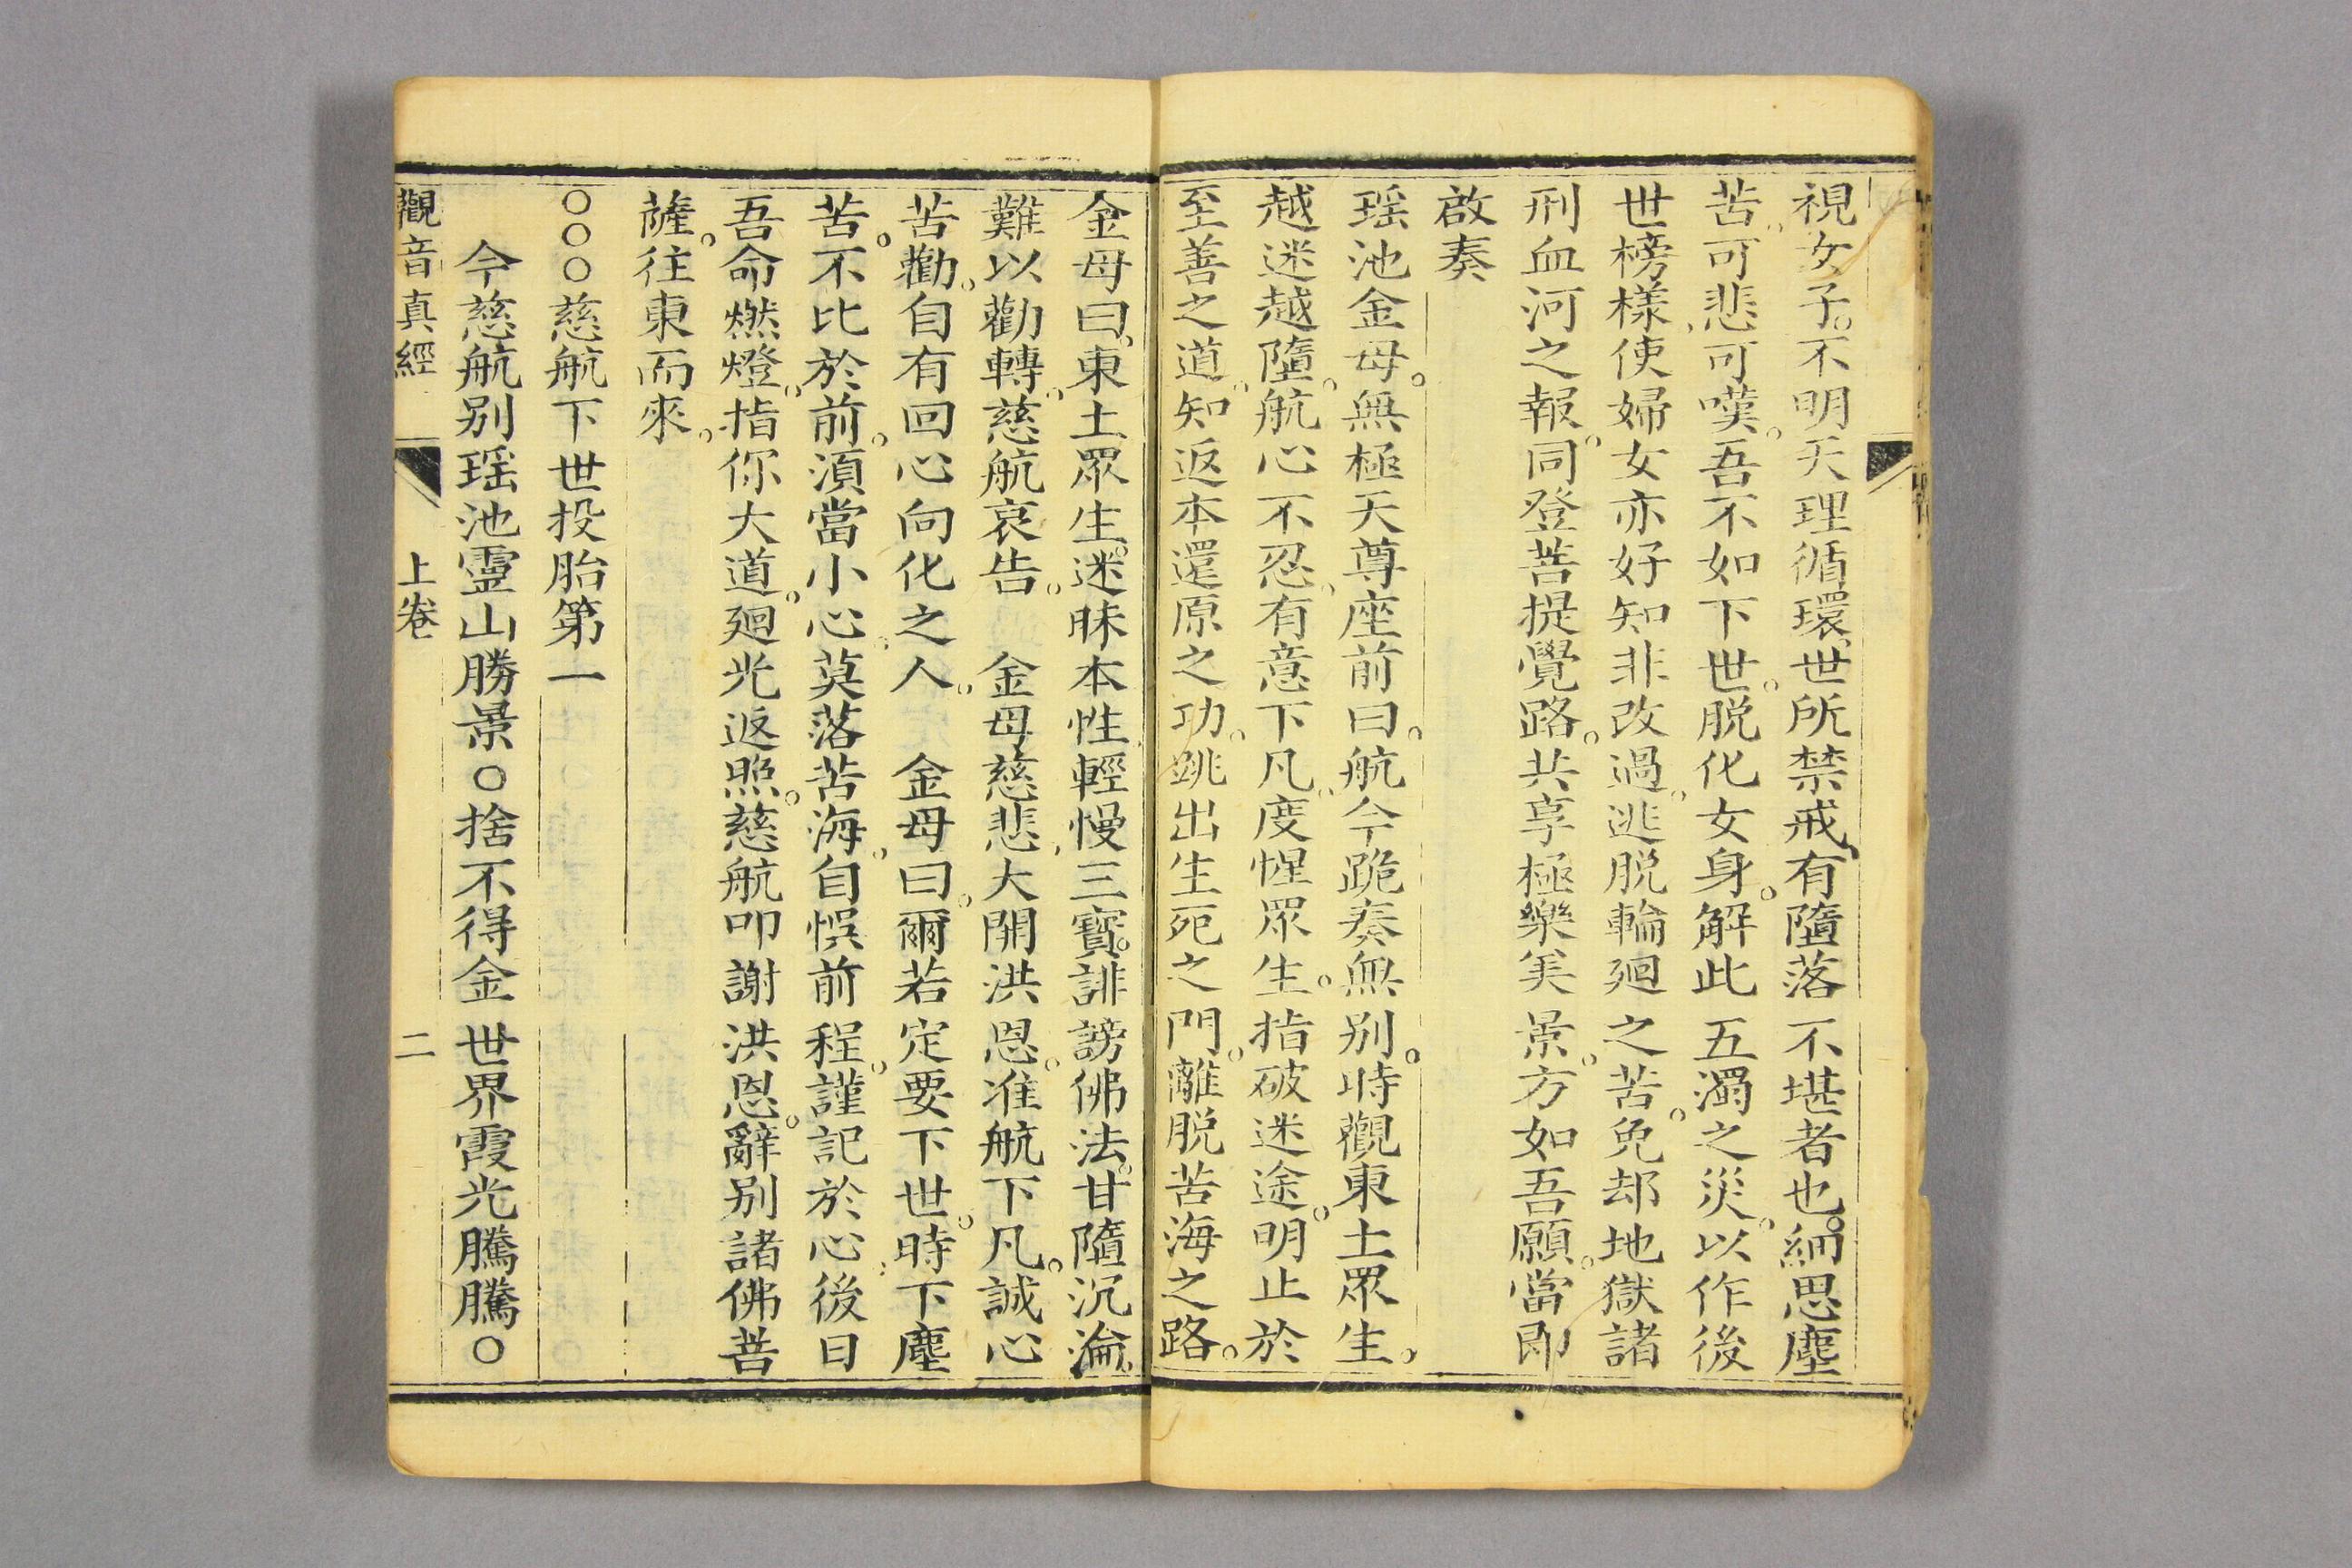 視女子。不明天理循環。世所禁戒、有墮落不堪者也。細思塵
苦、可悲可嘆。吾不如下世。脱化女身。解此五濁之災。以作後
世榜樣、使婦女亦好知非改過。逃脱輪廻之苦。免却地獄諸
刑血河之報。同登菩提覺路。共享極樂美景。方如吾願。當即
啟奏
瑶池金母。無極天尊座前曰。航今跪奏無别。時觀東土眾生。
越迷越墮。航心不忍。有意下凡。度惺眾生。指破迷途。明止於
至善之道。知返本還原之功。跳出生死之門。離脱苦海之路。
金母曰、東土眾生。迷昧本性輕慢三寶。誹謗佛法。甘墮沉淪。
難以勸轉。慈航哀告。金母慈悲、大開洪恩。准航下凡。誠心
苦勸。自有回心向化之人。金母曰。爾若定要下世。時下塵
苦。不比於前。須當小心。莫落苦海。自悞前程。謹記於心。後日
吾命燃燈。指你大道。廻光返照。慈航叩謝洪恩。辭别諸佛菩
薩。往東而來。
○○○慈航下世投胎第一
今慈航别瑶池靈山勝景○捨不得金世界霞光騰騰○
觀音真經 上卷 二